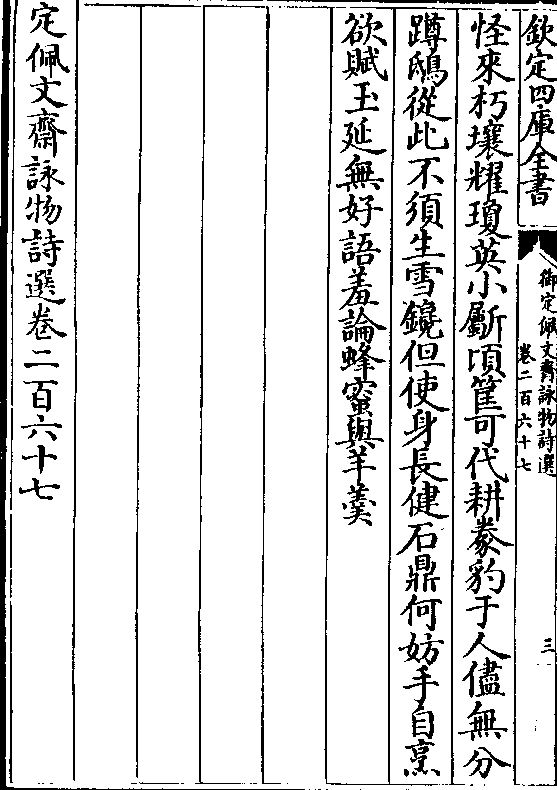 欽定四庫全書
御定佩文齋詠物詩選
卷二百六十七
三
怪來朽壤耀瓊英小斸頃筐可代耕豢豹于人儘無分
蹲鴟從此不須生雪鑱但使身長健石鼎何妨手自烹
欲賦玉延無好語羞論蜂蜜與羊羹
定佩文齋詠物詩選卷二百六十七